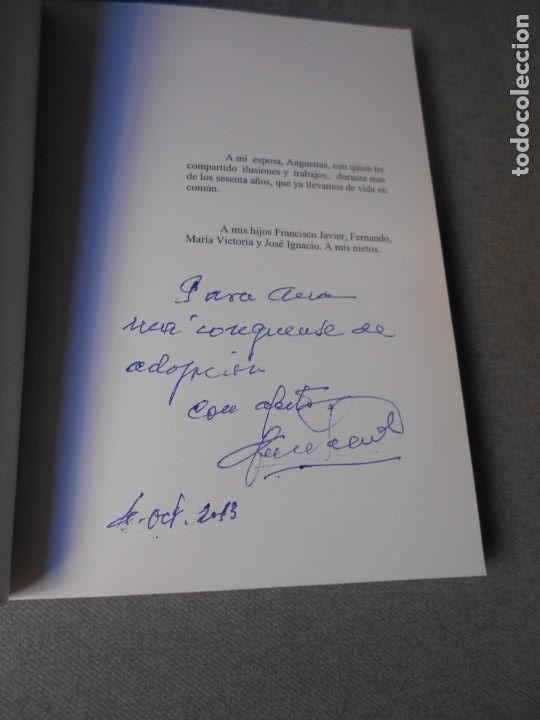 A mi esposa, Angustias, con quien he
compartido ilusiones y trabajos, durante mas
de los sesenta años, que ya llevamos de vida en
común.
A mis hijos Francisco Javier, Fernando,
María Victoria y José Ignacio. A mis nietos.
Para Ana
una conquense de
adopción
con afecto
Oct. 2013
todocoleccion.net